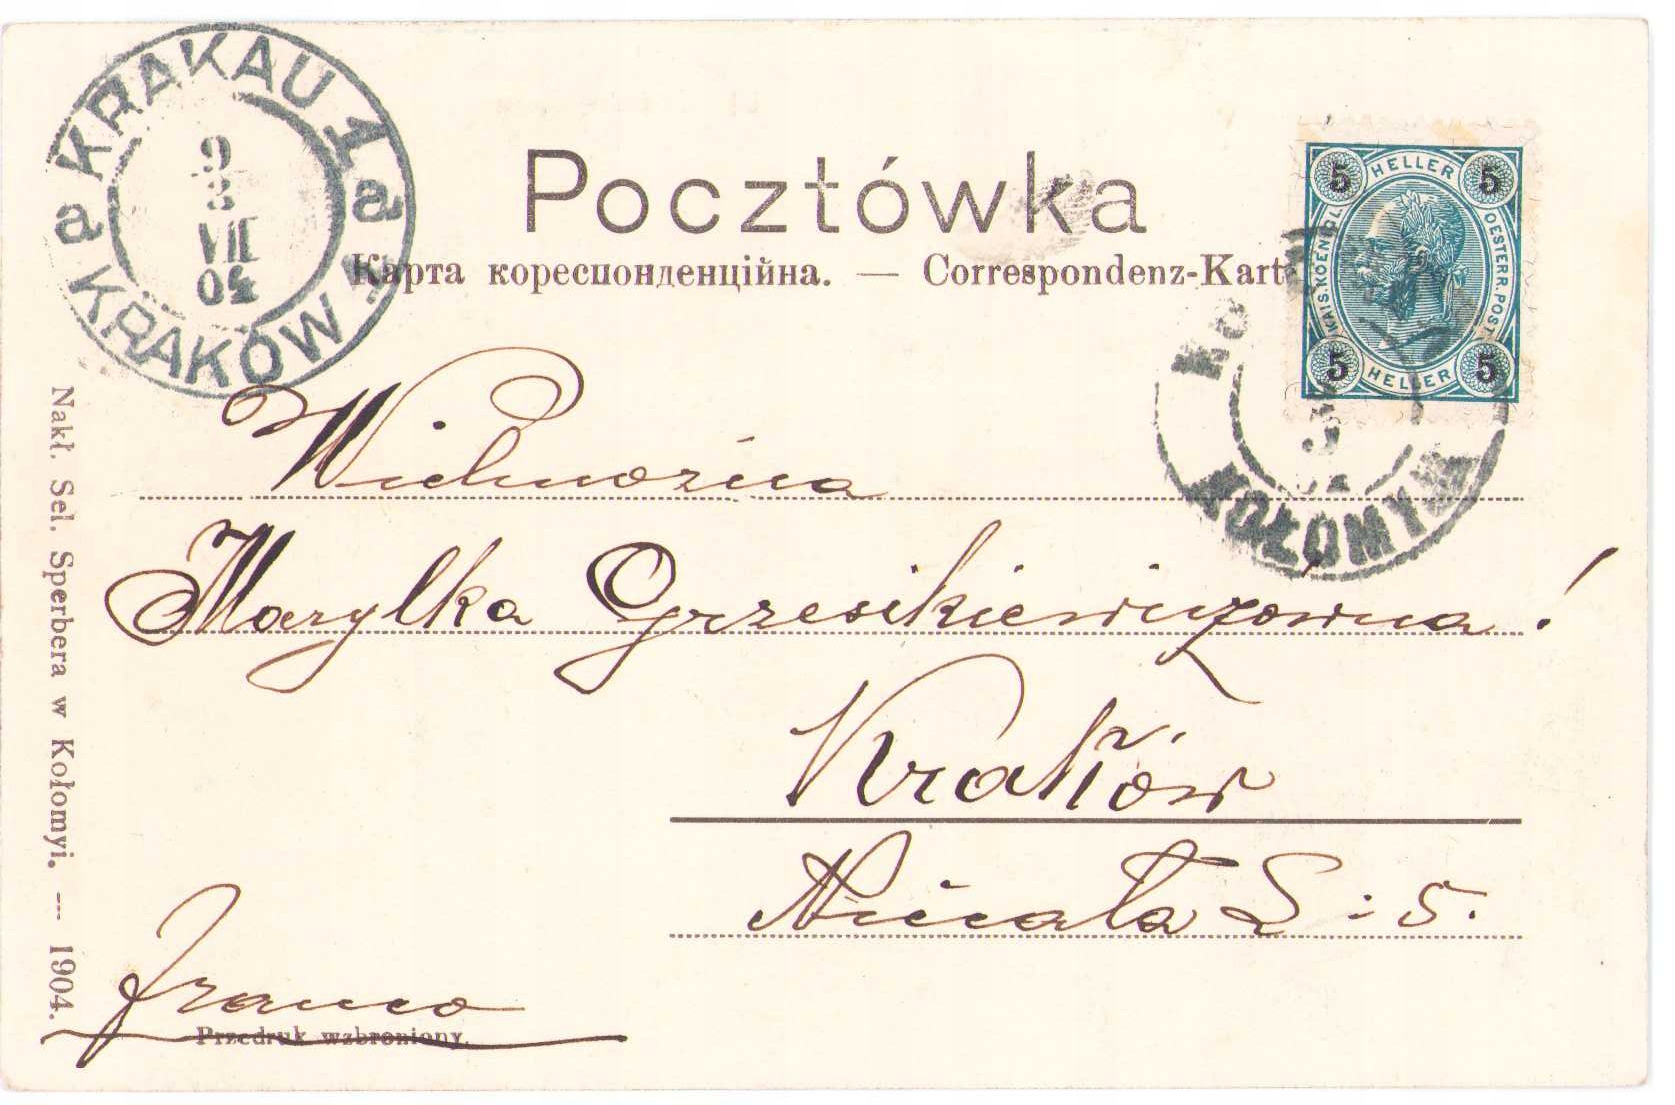 KRAKAU 1a
a KRAKÓW a
9
VII
04
Pocztówka
Карта кореспонденційна. — Correspondenz-Kart
5 HELLER 5
KAIS. KÖENIGL. OESTERR. POST
5 HELLER 5
KOŁOMYJA
Wielmożna
Marylka Grzesikiewiczówna!
Kraków
L: 5.
franco
Przedruk wzbroniony.
Nakł. Sel. Sperbera w Kołomyi. — 1904.